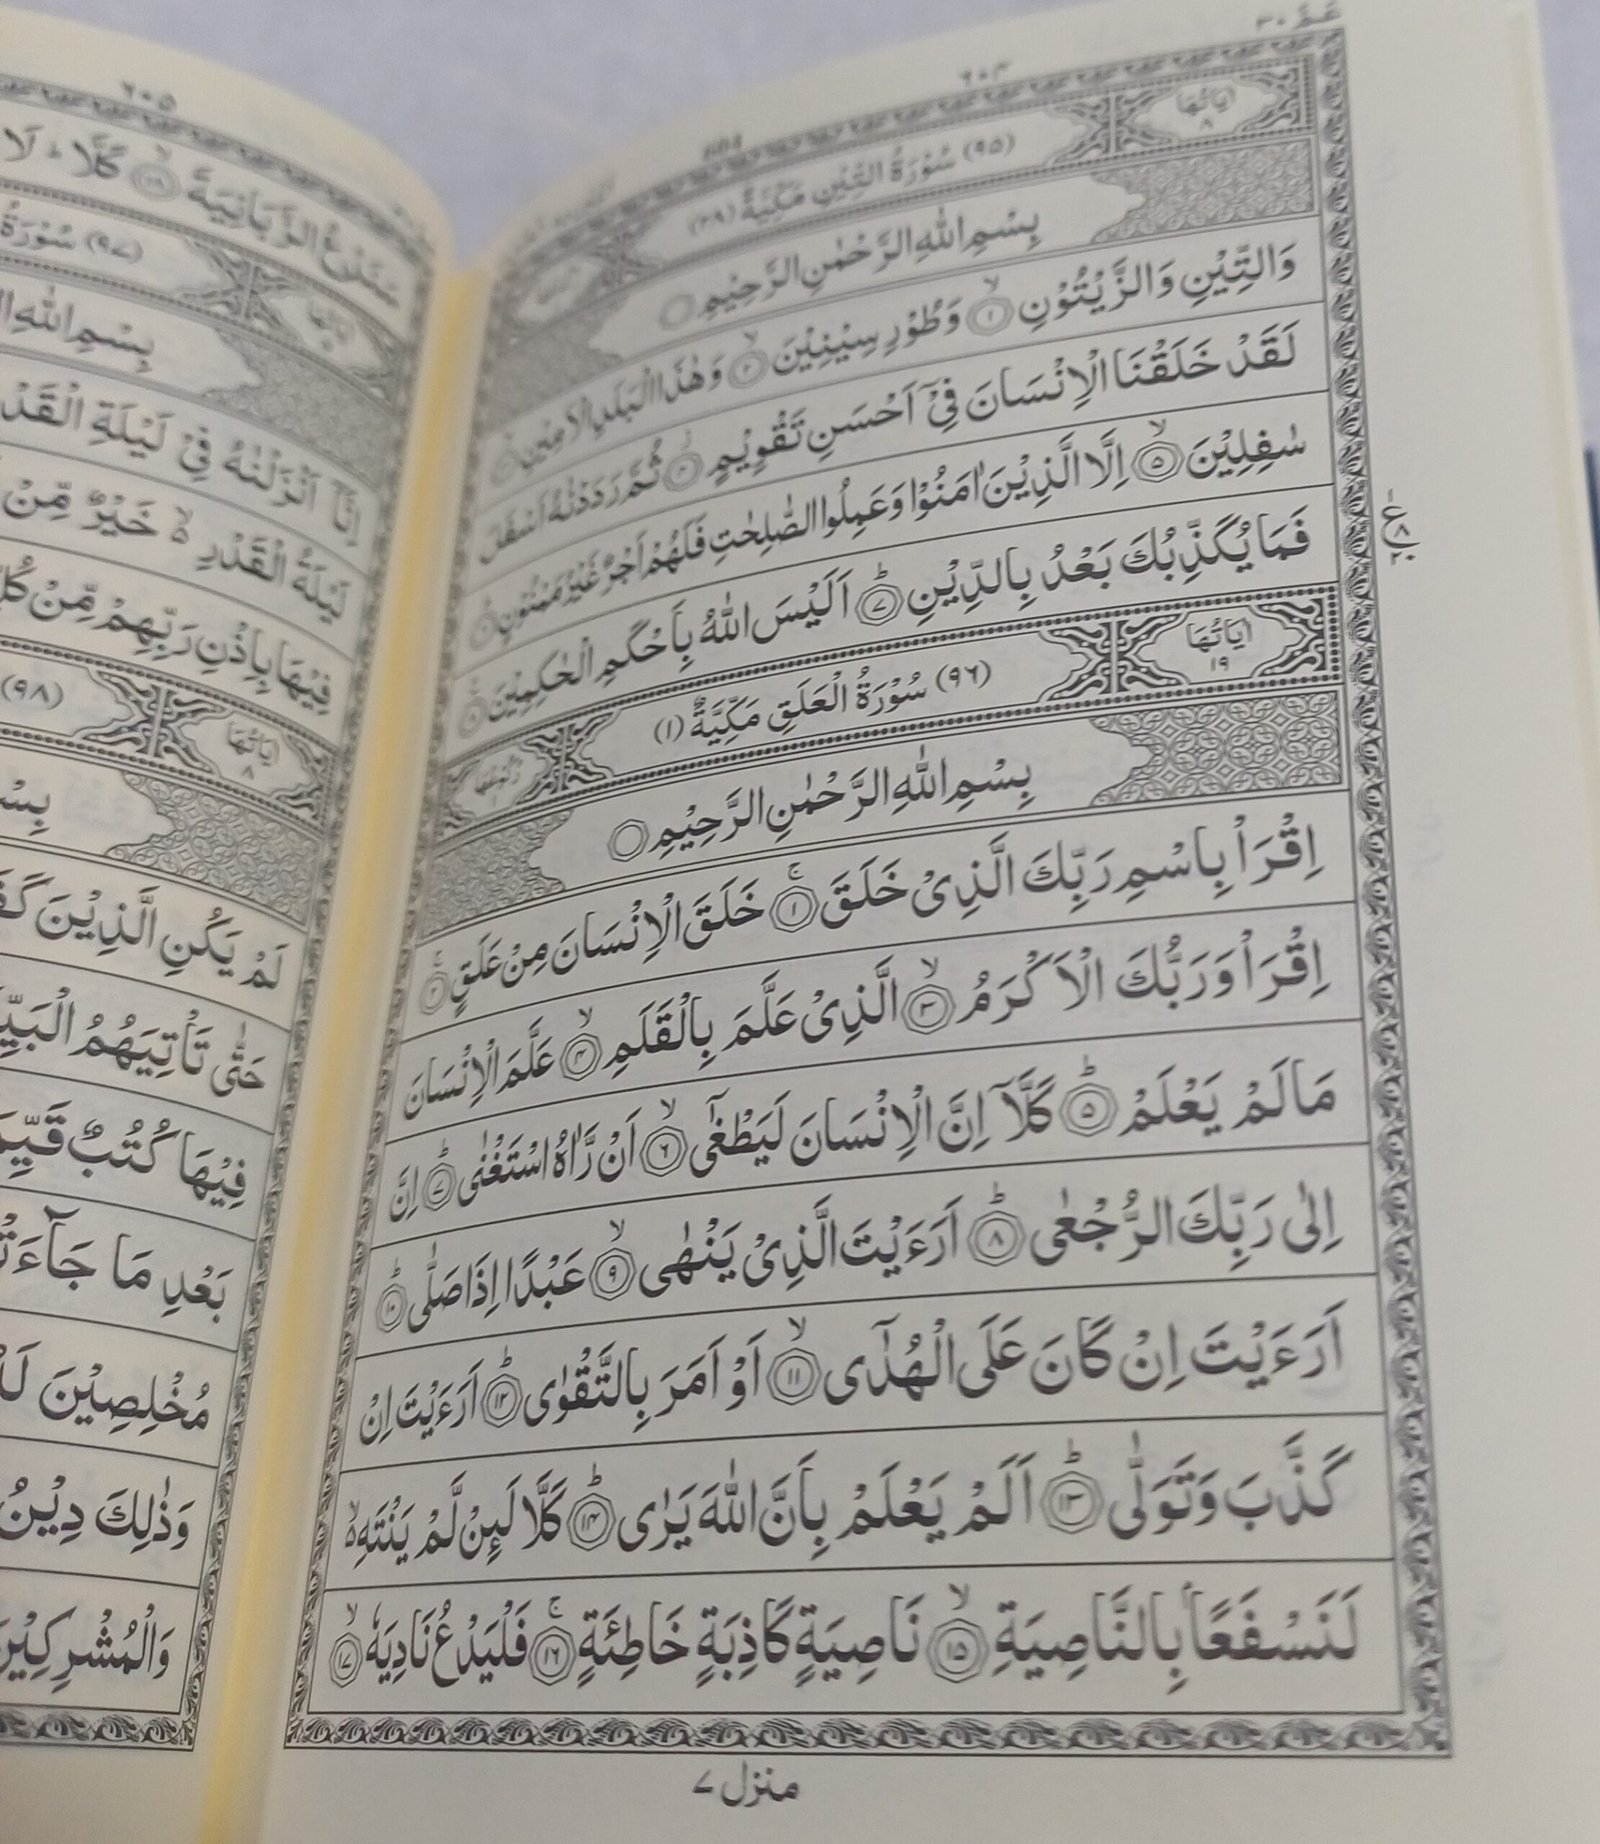 عَمَّ ٣٠
٦٠٤
604
اٰيَاتُهَا ٨
(٩٥) سُوْرَةُ التِّيْنِ مَكِّيَّةٌ (٢٨)
بِسْمِ اللّٰهِ الرَّحْمٰنِ الرَّحِيْمِ
وَالتِّيْنِ وَالزَّيْتُوْنِ ۙ‏﴿۱﴾ وَطُوْرِ سِيْنِيْنَ ۙ‏﴿۲﴾ وَهٰذَا الْبَلَدِ الْاَمِيْنِ ۙ‏﴿۳﴾
لَقَدْ خَلَقْنَا الْاِنْسَانَ فِىْۤ اَحْسَنِ تَقْوِيْمٍ ؗ‏﴿۴﴾ ثُمَّ رَدَدْنٰهُ اَسْفَلَ
سٰفِلِيْنَ ۙ‏﴿۵﴾ اِلَّا الَّذِيْنَ اٰمَنُوْا وَعَمِلُوا الصّٰلِحٰتِ فَلَهُمْ اَجْرٌ غَيْرُ مَمْنُوْنٍ ؕ‏﴿۶﴾
فَمَا يُكَذِّبُكَ بَعْدُ بِالدِّيْنِ ؕ‏﴿۷﴾ اَلَيْسَ اللّٰهُ بِاَحْكَمِ الْحٰكِمِيْنَ ﴿۸﴾
اٰيَاتُهَا ١٩
(٩٦) سُوْرَةُ الْعَلَقِ مَكِّيَّةٌ (١)
رُكُوْعُهَا
بِسْمِ اللّٰهِ الرَّحْمٰنِ الرَّحِيْمِ
اِقْرَاْ بِاسْمِ رَبِّكَ الَّذِىْ خَلَقَ ۚ‏﴿۱﴾ خَلَقَ الْاِنْسَانَ مِنْ عَلَقٍ ۚ‏﴿۲﴾
اِقْرَاْ وَرَبُّكَ الْاَكْرَمُ ۙ‏﴿۳﴾ الَّذِىْ عَلَّمَ بِالْقَلَمِ ۙ‏﴿۴﴾ عَلَّمَ الْاِنْسَانَ
مَا لَمْ يَعْلَمْ ؕ‏﴿۵﴾ كَلَّاۤ اِنَّ الْاِنْسَانَ لَيَطْغٰٓى ۙ‏﴿۶﴾ اَنْ رَّاٰهُ اسْتَغْنٰى ؕ‏﴿۷﴾ اِنَّ
اِلٰى رَبِّكَ الرُّجْعٰى ؕ‏﴿۸﴾ اَرَءَيْتَ الَّذِىْ يَنْهٰى ۙ‏﴿۹﴾ عَبْدًا اِذَا صَلّٰى ؕ‏﴿۱۰﴾
اَرَءَيْتَ اِنْ كَانَ عَلَى الْهُدٰٓى ۙ‏﴿۱۱﴾ اَوْ اَمَرَ بِالتَّقْوٰى ؕ‏﴿۱۲﴾ اَرَءَيْتَ اِنْ
كَذَّبَ وَتَوَلّٰى ؕ‏﴿۱۳﴾ اَلَمْ يَعْلَمْ بِاَنَّ اللّٰهَ يَرٰى ؕ‏﴿۱۴﴾ كَلَّا لَئِنْ لَّمْ يَنْتَهِ ۬ۙ
لَنَسْفَعًۢا بِالنَّاصِيَةِ ۙ‏﴿۱۵﴾ نَاصِيَةٍ كَاذِبَةٍ خَاطِئَةٍ ۚ‏﴿۱۶﴾ فَلْيَدْعُ نَادِيَهٗ ۙ‏﴿۱۷﴾
منزل ٧
٦٠٥
سَنَدْعُ الزَّبَانِيَةَ ۙ‏﴿۱۸﴾ كَلَّا ؕ لَا
(٩٧) سُوْرَةُ
اٰيَاتُهَا
بِسْمِ اللّٰهِ
اِنَّاۤ اَنْزَلْنٰهُ فِىْ لَيْلَةِ الْقَدْ
لَيْلَةُ الْقَدْرِ ۬ۙ خَيْرٌ مِّنْ
فِيْهَا بِاِذْنِ رَبِّهِمْ مِّنْ كُلِّ
(٩٨)
اٰيَاتُهَا ٨
بِسْ
لَمْ يَكُنِ الَّذِيْنَ كَفَ
حَتّٰى تَاْتِيَهُمُ الْبَيِّ
فِيْهَا كُتُبٌ قَيِّمَ
بَعْدِ مَا جَآءَتْ
مُخْلِصِيْنَ لَ
وَذٰلِكَ دِيْنُ
وَالْمُشْرِكِيْنَ